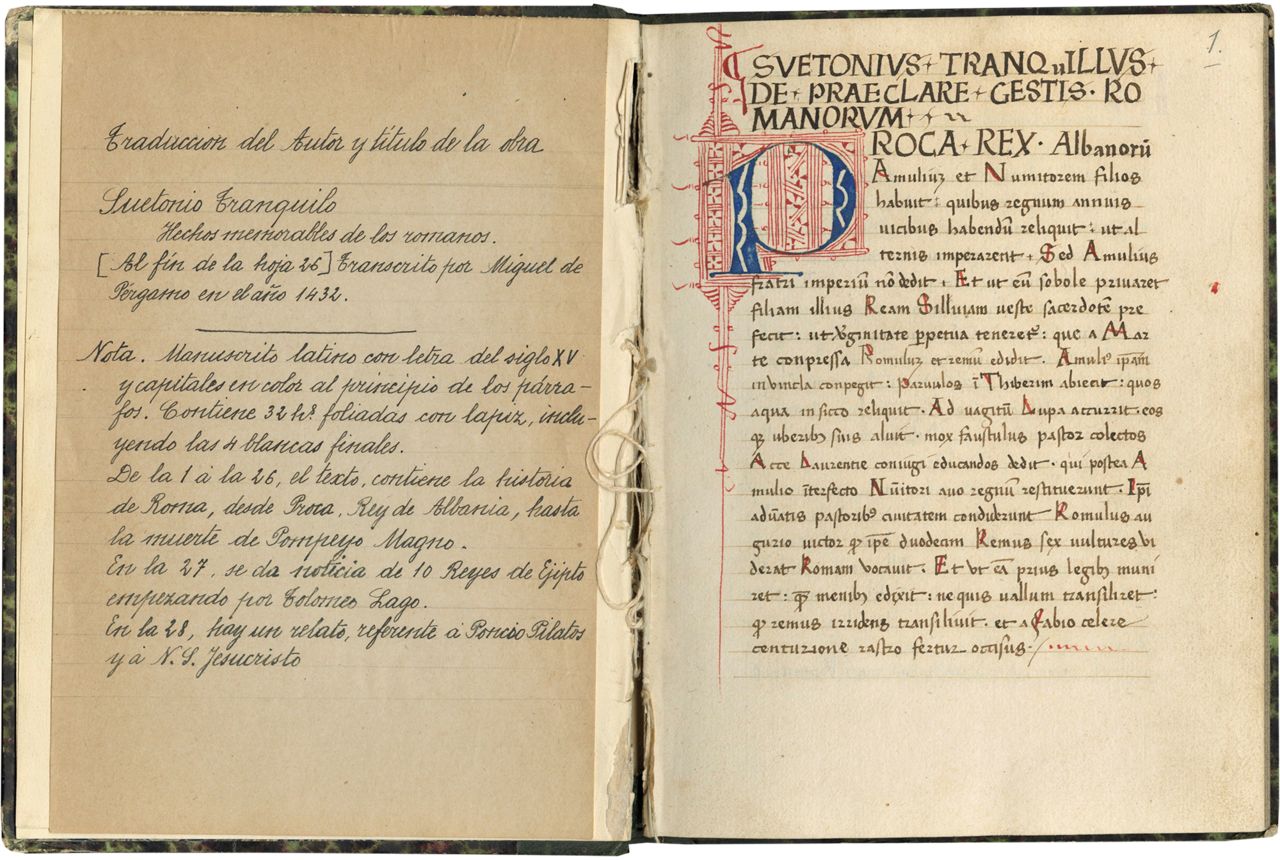 Traduccion del Autor y título de la obra
Suetonio Tranquilo
Hechos memorables de los romanos.
[Al fin de la hoja 26] Transcrito por Miguel de
Pérgamo en el año 1432.
Nota. Manuscrito latino con letra del siglo XV
y capitales en color al principio de los párra-
fos. Contiene 32 hs. foliadas con lapiz, inclu-
yendo las 4 blancas finales.
De la 1 á la 26, el texto, contiene la historia
de Roma, desde Proca, Rey de Albania, hasta
la muerte de Pompeyo Magno.
En la 27, se da noticia de 10 Reyes de Ejipto
empezando por Tolomeo Lago.
En la 28, hay un relato, referente á Poncio Pilatos
y á N. S. Jesucristo
1.
SVETONIVS TRANQuILLVS
DE PRAECLARE GESTIS· RO
MANORVM
PROCA REX· Albanorū
Amuliuz et Numitorem filios
habuit: quibus regnum annuis
uicibus habendū reliquit: ut al
ternis imperarent Sed Amulius
fratri imperiū nō dedit· Et ut eū sobole priuaret
filiam illius Ream Silluiam ueste sacerdotē pre
fecit: ut uṙginitate ꝑpetua teneretᷣ: que a Mar
te conpressa Romuluz et remū edidit· Amulꝰ ip̄am
in vincla conpegit: Paruulos ī Thiberim abiecit: quos
aqua in sicco reliquit· Ad vagitū Lupa accurrit· eos
qꝫ uberibꝫ suis aluit· mox faustulus pastor colectos
Acce Laurentie coniugi educandos dedit· qui postea A
mulio īterfecto Nūitori auo regnū restituerunt· Ip̄i
adunatis pastoribꝫ ciuitatem condiderunt Romulus au
gurio victor qꝫ ip̄e duodecim Remus sex uultures vi
derat Romam vocauit· Et vt eā prius legibꝫ muni
ret: qͣꝫ menibꝫ edixit: ne quis uallum transiliret:
qꝫ remus irridens transiliuit· et a Fabio celere
centurione rastro fertur occisus·